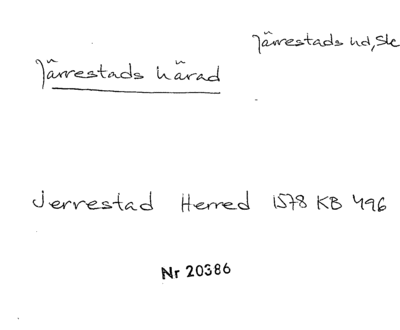 Järrestads hd, Sk
Järrestads härad
Jerrestad Herred 1578 KB 496
Nr 20386